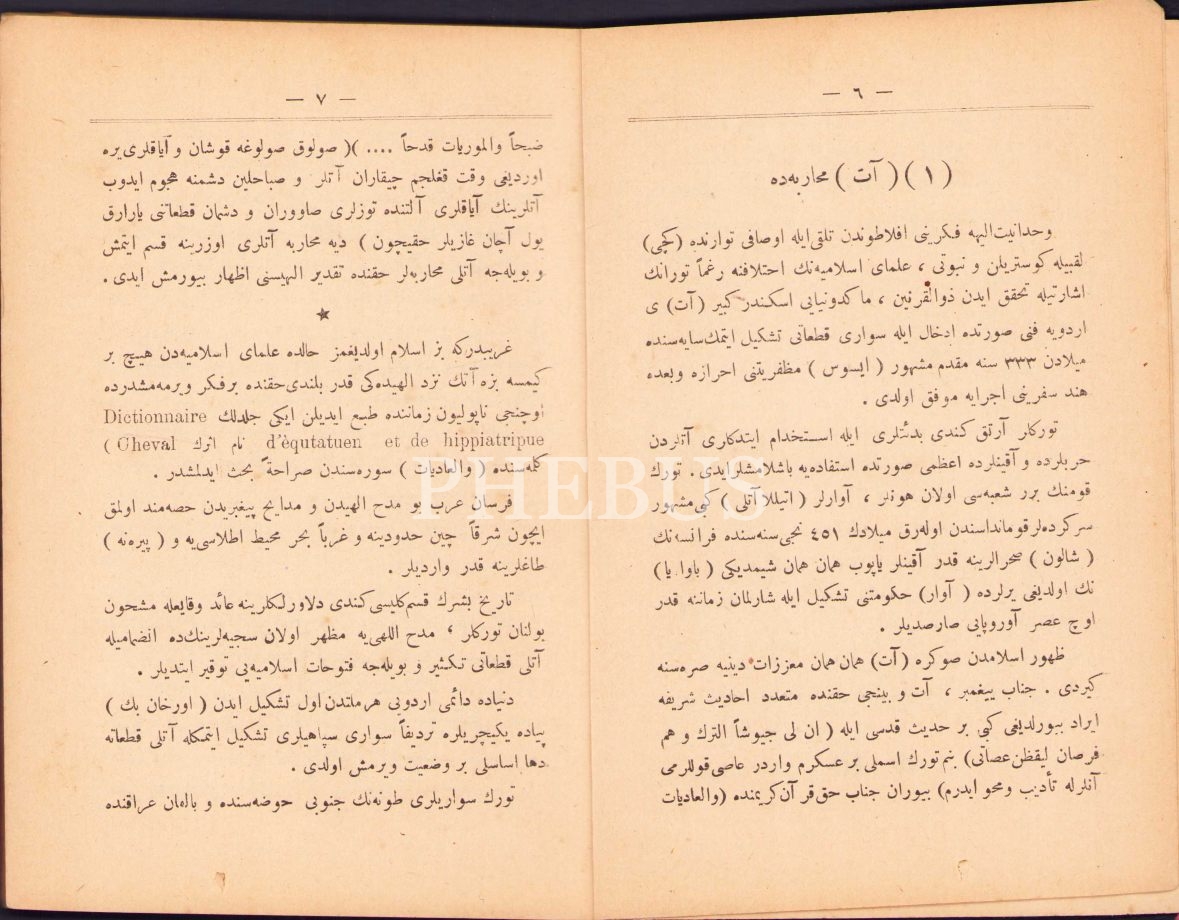 — ٦ —
( ١ ) ( آت ) محاربه‌ده
وحدانیت‌الهیه فکرینی افلاطوندن تلقی‌ایله اوصافی توراتده (کچی)
لقبیله کوستریلن و نبوتی ، علمای اسلامیه‌نك اختلافنه رغماً تورانك
اشارتیله تحقق ایدن ذوالقرنین ، ماکدونیایی اسکندر کبیر (آت) ی
اردویه فنی صورتده ادخال ایله سواری قطعاتی تشکیل ایتمك‌سایه‌سنده
میلاددن ٣٣٣ سنه مقدم مشهور ( ایسوس ) مظفریتنی احرازه وبعده
هند سفرینی اجرایه موفق اولدی .
تورکلر آرتق کندی بدئتلری ایله استخدام ایتدکاری آتلردن
حربلرده و آقینلرده اعظمی صورتده استفاده‌یه باشلامشلرایدی . تورك
قومنك برر شعبه‌سی اولان هونلر ، آوارلر ( اتیللاآتلی ) کبی‌مشهور
سرکرده‌لرقومانداسندن اوله‌رق میلادك ٤٥١ نجی‌سنه‌سنده فرانسه‌نك
( شالون ) صحرالرینه قدر آقینلر یاپوب همان همان شیمدیکی ( باوایا)
نك اولدیغی یرلرده ( آوار) حکومتنی تشکیل ایله شارلمان زماننه قدر
اوچ عصر آوروپایی صارصدیلر .
ظهور اسلامدن صوکره (آت) همان همان معززات دینیه صره‌سنه
کیردی . جناب پیغمبر ، آت و بینجی حقنده متعدد احادیث شریفه
ایراد بیورلدیغی کبی بر حدیث قدسی ایله ( ان لی جیوشاً الترك و هم
فرصان لیقظن‌عصاتی) بنم‌تورك اسملی بر عسکرم واردر عاصی‌قوللرمی
آنلرله تأدیب ومحو ایدرم) بیوران جناب حق‌قرآن‌کریمنده (والعادیات
— ٧ —
ضبحاً والموریات قدحاً .... )( صولوق صولوغه قوشان و آیاقلری‌یره
اوردیغی وقت قغلجم چیقاران آتلر و صباحلین دشمنه هجوم ایدوب
آتلرینك آیاقلری آلتنده توزلری صاووران و دشمان قطعاتنی یارارق
یول آچان غازیلر حقیچون ) دیه محاربه آتلری اوزرینه قسم ایتمش
و بویله‌جه آتلی محاربه‌لر حقنده تقدیر الهیسنی اظهار بیورمش ایدی .
★
غریبدرکه بز اسلام اولدیغمز حالده علمای اسلامیه‌دن هیچ بر
کیمسه بزه آتك نزد الهیده‌کی قدر بلندی‌حقنده برفکر ویرمه‌مشدرده
اوچنجی ناپولیون زماننده طبع ایدیلن ایکی جلدلك Dictionnaire
d'èqutatuen et de hippiatripue نام اثرك Cheval )
کلمه‌سنده ( والعادیات ) سوره‌سندن صراحةً بحث ایدلمشدر .
فرسان عرب بو مدح الهیدن و مدایح پیغمبریدن حصه‌مند اولمق
ایچون شرقاً چین حدودینه و غرباً بحر محیط اطلاسی‌یه و ( پیره‌نه )
طاغلرینه قدر واردیلر .
تاریخ بشرك قسم‌کلیسی‌کندی دلاورلکلرینه عائد وقایعله مشحون
بولنان تورکلر ، مدح اللهی‌یه مظهر اولان سجیه‌لرینك‌ده انضمامیله
آتلی قطعاتی تکثیر و بویله‌جه فتوحات اسلامیه‌یی توقیر ایتدیلر .
دنیاده دائمی اردوبی هرملتدن‌اول تشکیل ایدن ( اورخان بك )
پیاده یکیچریلره تردیفاً سواری سپاهیلری تشکیل ایتمکله آتلی قطعاته
دها اساسلی بر وضعیت ویرمش اولدی .
تورك سواریلری طونه‌نك جنوبی حوضه‌سنده و بالخان عراقنده
PHEBUS